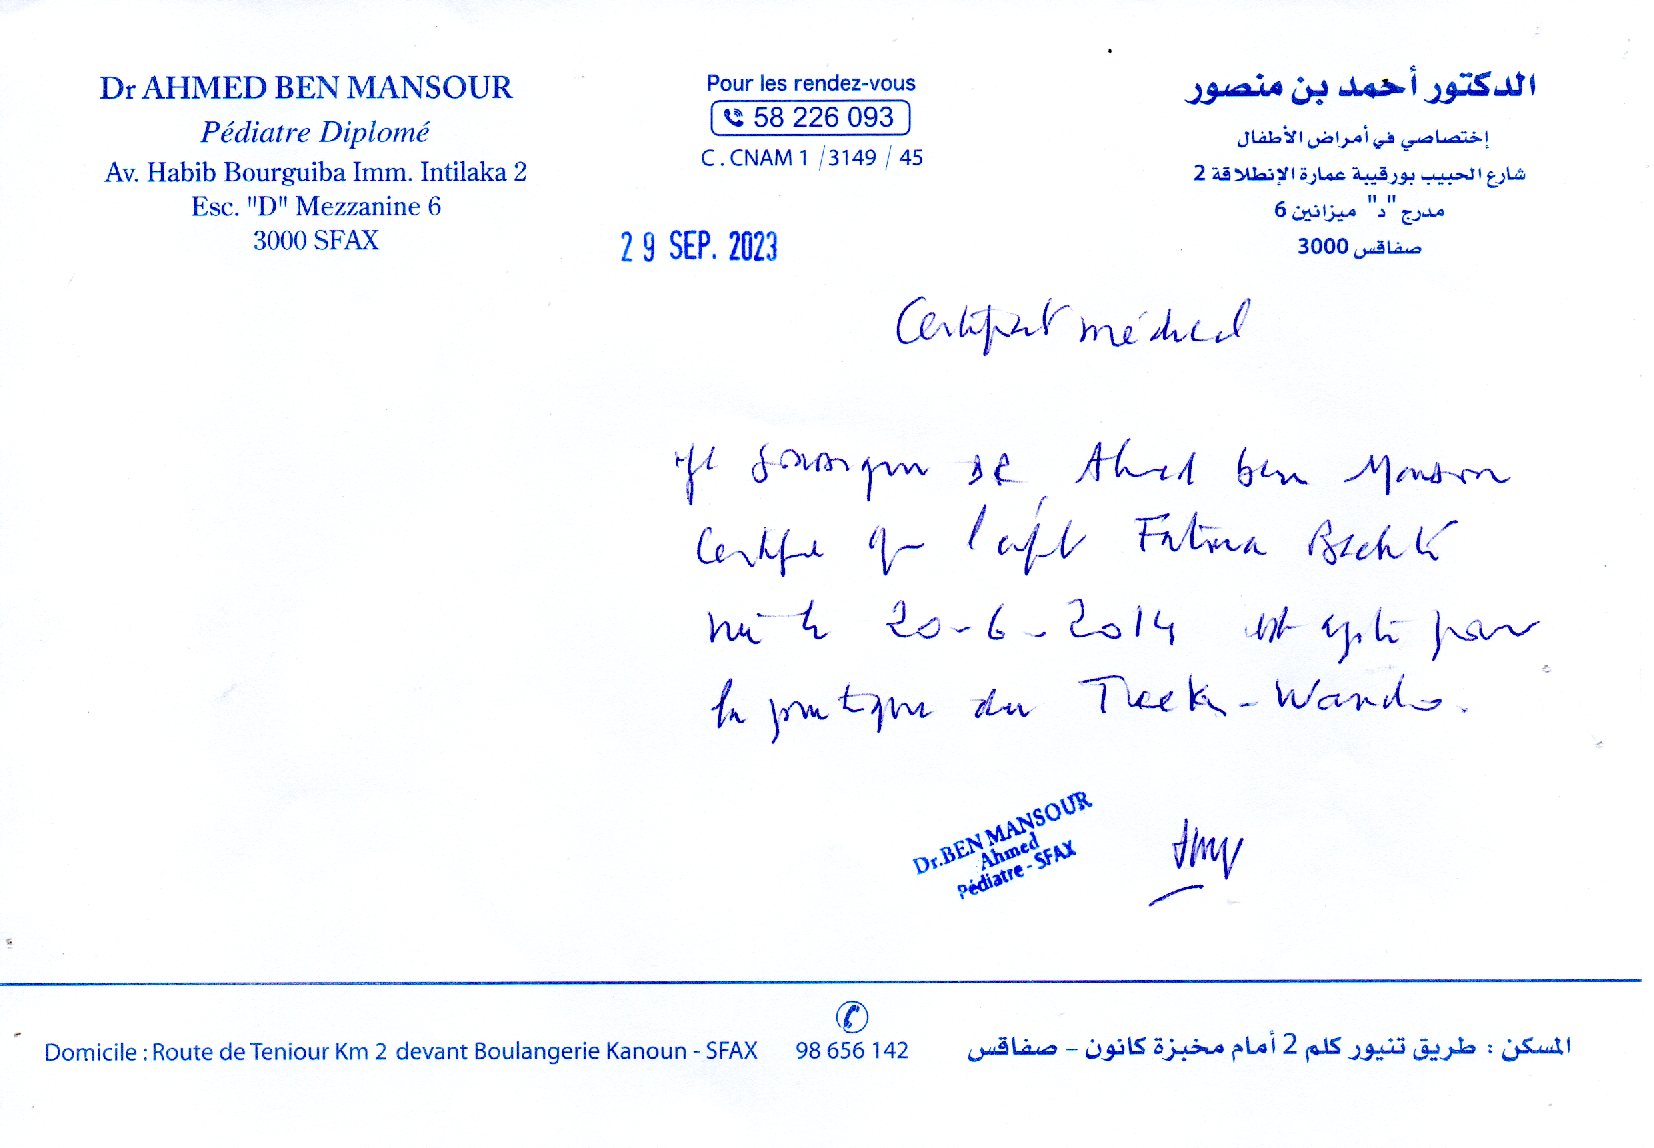 Dr AHMED BEN MANSOUR
Pédiatre Diplomé
Av. Habib Bourguiba Imm. Intilaka 2
Esc. "D" Mezzanine 6
3000 SFAX
Pour les rendez-vous
58 226 093
C . CNAM 1 / 3149 / 45
الدكتور أحمد بن منصور
إختصاصي في أمراض الأطفال
شارع الحبيب بورقيبة عمارة الإنطلاقة 2
مدرج "د" ميزانين 6
صفاقس 3000
29 SEP. 2023
Certificat médical
Je soussigné Dr Ahmed ben Mansour
Certifie que l'enfant Fatma
née le 20-6-2014 est apte pour
la pratique du Taek-Wando.
Dr.BEN MANSOUR
Ahmed
Pédiatre - SFAX
Domicile : Route de Teniour Km 2 devant Boulangerie Kanoun - SFAX 98 656 142
المسكن : طريق تنيور كلم 2 أمام مخبزة كانون – صفاقس